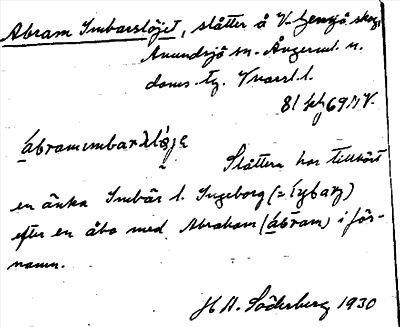 Abram Imbarslöjet, slåtter å V. Gensjö skog,
Anundsjö sn. Ångerml. n.
doms. tg. Vnorrl. l.
81 69 NV.
ábramımbarslöjε
Slåttern har tillhört
en änka Imbär l. Ingeborg (=
efter en åbo med Abraham (ábram) i för-
namn.
H A. Söderberg 1930